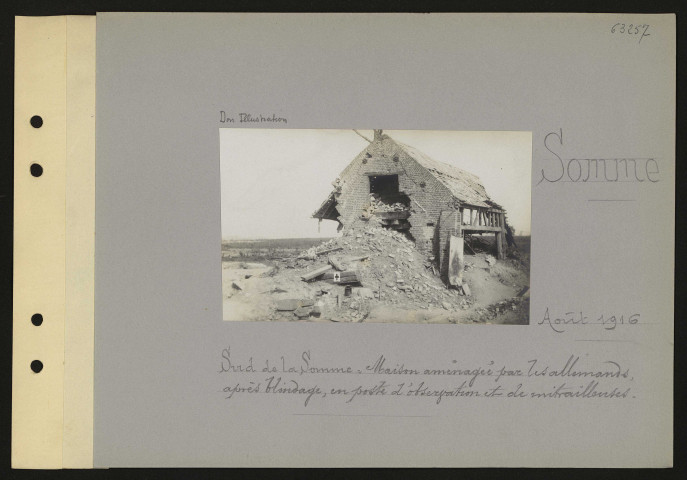 63257
Don Illustration
Somme
Août 1916
Sud de la Somme. Maison aménagée par les allemands,
après blindage, en poste d'observation et de mitrailleuses.